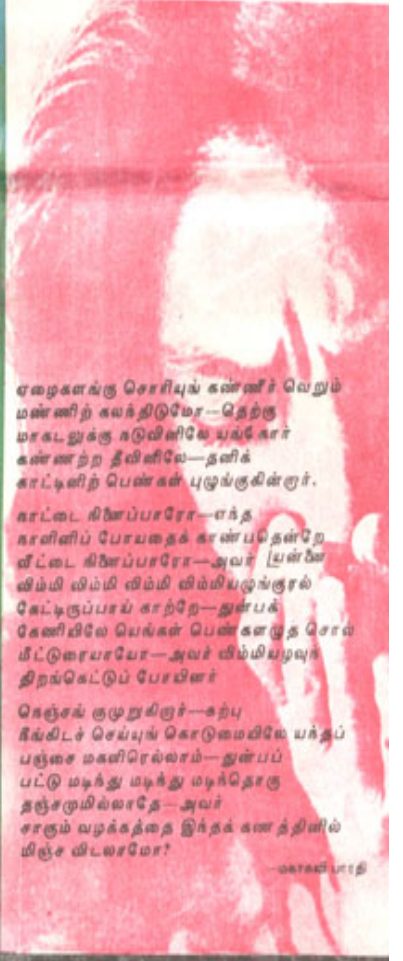 ஏழைகளங்கு சொரியுங் கண்ணீர் வெறும்
மண்ணிற் கலந்திடுமோ—தெற்கு
மாகடலுக்கு நடுவினிலே யங்கோர்
கண்ணற்ற தீவினிலே—தனிக்
காட்டினிற் பெண்கள் புழுங்குகின்றார்.
நாட்டை நினைப்பாரோ—எந்த
நாளினிப் போயதைக் காண்பதென்றே
வீட்டை நினைப்பாரோ—அவர் [யன்னை
விம்மி விம்மி விம்மி விம்மியழுங்குரல்
கேட்டிருப்பாய் காற்றே—துன்பக்
கேணியிலே யெங்கள் பெண்களழுத சொல்
மீட்டுரையாயோ—அவர் விம்மியழவுந்
திறங்கெட்டுப் போயினர்
நெஞ்சங் குமுறுகிறார்—கற்பு
நீங்கிடச் செய்யுங் கொடுமையிலே யந்தப்
பஞ்சை மகளிரெல்லாம்—துன்பப்
பட்டு மடிந்து மடிந்து மடிந்தொரு
தஞ்சமுமில்லாதே—அவர்
சாகும் வழக்கத்தை இந்தக் கணத்தினில்
மிஞ்ச விடலாமோ?
—மகாகவி பாரதி